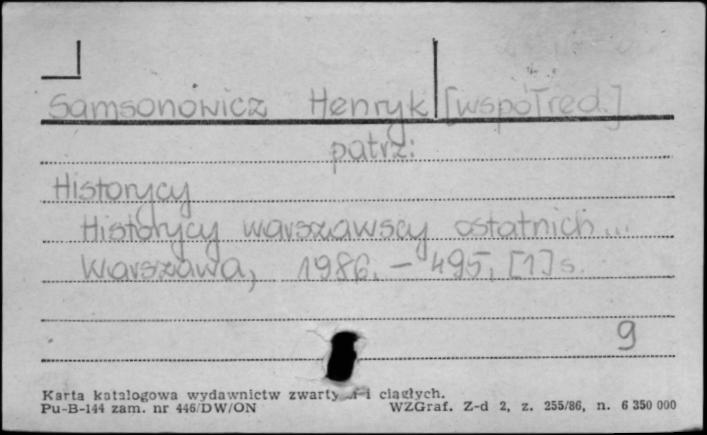 Samsonowicz Henryk [współred.]
patrz:
Historycy
Historycy warszawscy ostatnich...
Warszawa, 1986. – 495, [1] s.
9
Karta katalogowa wydawnictw zwartych i ciągłych.
Pu-B-144 zam. nr 446/DW/ON WZGraf. Z-d 2, z. 255/86, n. 6 350 000